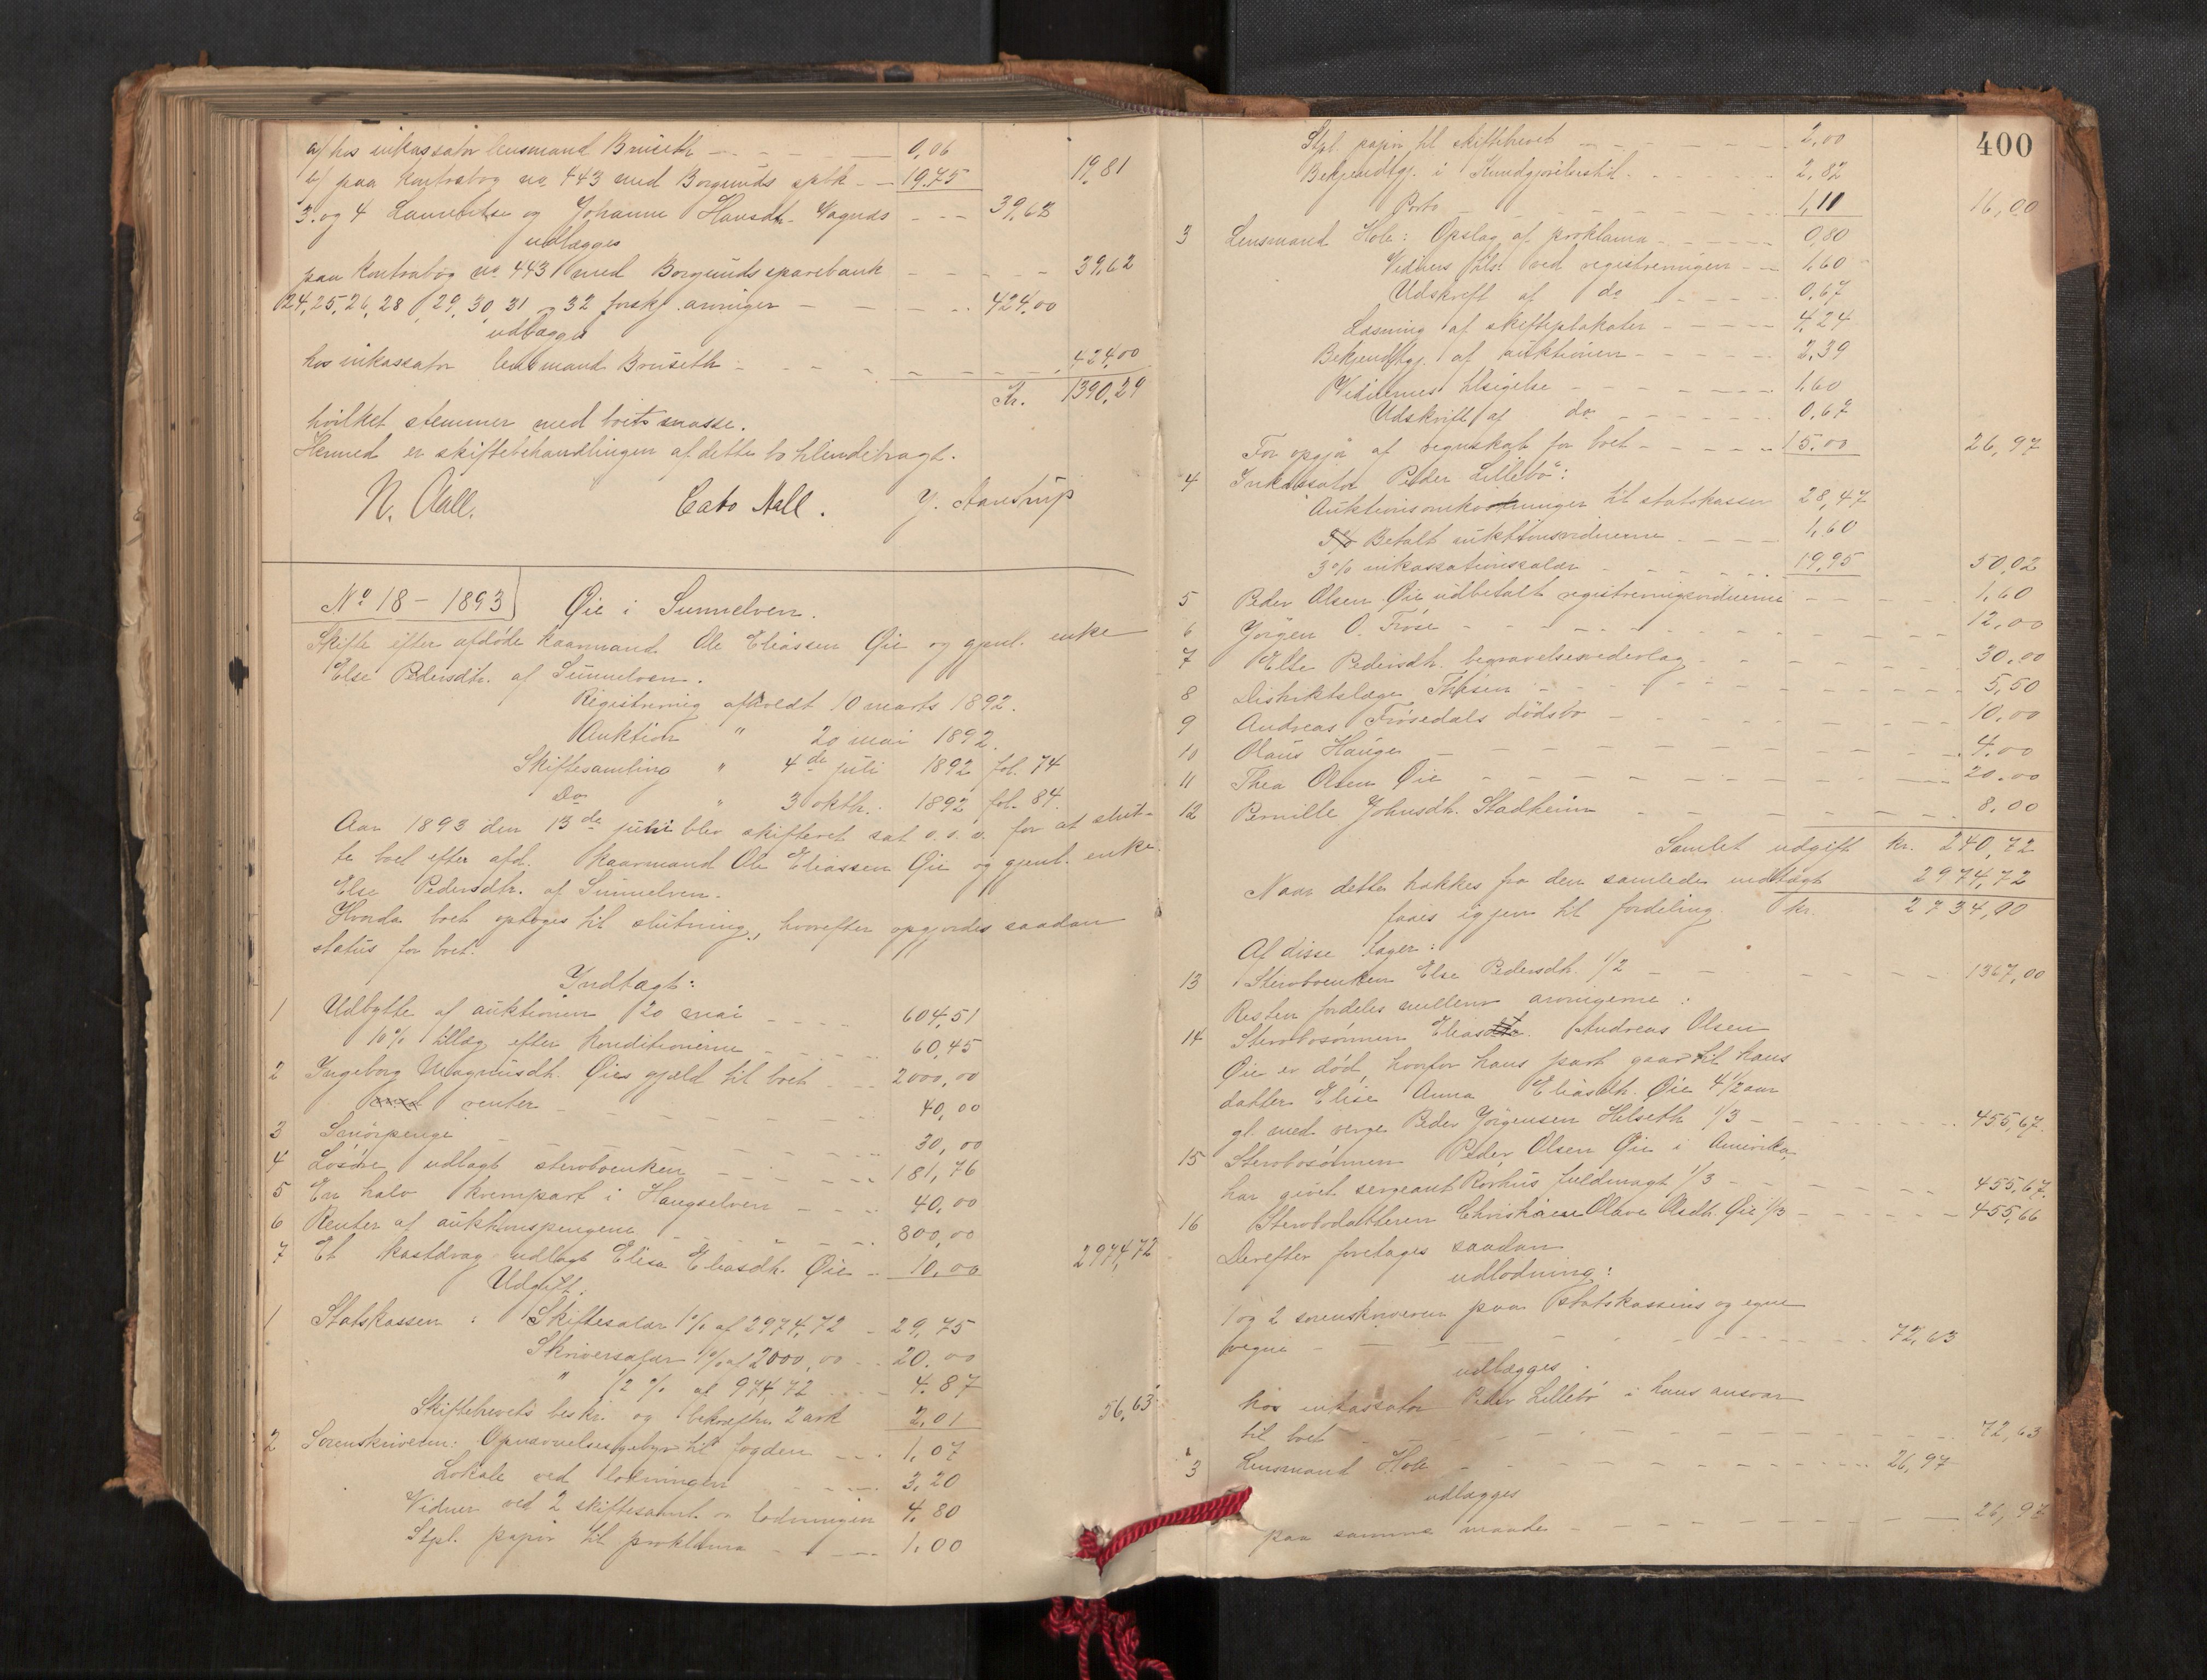 a) hos inkassator lensmand Bruseth 0,06
b) paa kontrabog no 443 med Borgunds spbk 19,75 19,81
3. og 4 Lauentse og Johanne Hansdtr. Vagnes 39,62
udlægges
paa kontrabog no 443 med Borgunds sparebank 39,62
24, 25, 26, 28, 29, 30, 31 og 32 forskj. arvinger 424,00
udlægges
hos inkassator lensmand Bruseth 424,00
Kr. 1390,29
hvilket stemmer med boets masse.
Hermed er skiftebehandlingen af dette bo tilendebragt.
N. Aall. Cato Aall. J. Aanstrup
No 18 - 1893 Øie i Sunnelven.
Skifte efter afdøde kaarmand Ole Eliassen Øie og gjenl. enke
Else Pedersdtr. af Sunnelven.
Registrering afholdt 10 marts 1892.
Auktion " 20 mai 1892.
Skiftesamling " 4de juli 1892 fol. 74
Do " 3 oktbr. 1892 fol. 84.
Aar 1893 den 13de juli blev skifteret sat o. s. v. for at slut-
te boet efter afd. kaarmand Ole Eliassen Øie og gjenl. enke
Else Pedersdtr. af Sunnelven.
Hvorda boet optoges til slutning, hvorefter opgjordes saadan
status for boet.
Indtægt:
1 Udbytte af auktionen 20 mai 604,51
10% tillæg efter konditionerne 60,45
2 Ingeborg Magnusdtr. Øies gjæld til boet 2000,00
renter 40,00
3 Smørpenge 30,00
4 Løsøre udlagt sterboenken 181,76
5 En halv kvernpart i Haugselven 40,00
6 Renter af auktionspengene 800,00
7 Et kastdrag udlagt Elisa Eliasdtr. Øie 10,00 2974,72
Udgift.
1 Statskassen: Skiftesalær 1% af 2974,72 29,75
Skriversalær 1% af 2000,00 20,00
" 1/2 % af 974,72 4,87
Skiftebrevets beskr. og bekræftn. 2 ark 2,01 56,63
2 Sorenskriveren: Opnævnelsesgebyr til fogden 1,07
Lokale ved lodningen 3,20
Vidner ved 2 skiftesaml. og lodningen 4,80
Stpl. papir til proklama 1,00
400
Stpl. papir til skiftebrevet 2,00
Bekjendtgj. i Kundgjørelsestid. 2,82
Porto 1,11 16,00
3 Lensmand Hole: Opslag af proklama 0,80
Vidners tilst. ved registreringen 1,60
Udskrift af do 0,67
Læsning af skifteplakater 4,24
Bekjendtgj. af auktionen 2,39
Vidnernes tilsigelse 1,60
Udskrift af do 0,67
For opgjør af regnskab for boet 15,00 26,97
4 Inkassator Peder Lillebø:
Auktionsomkostninger til statskassen 28,47
Betalt auktionsvidnerne 1,60
3% inkassationssalær 19,95 50,02
5 Peder Olsen Øie udbetalt registreringsvidnerne 1,60
6 Jørgen O. Frøse 12,00
7 Else Pedersdtr. begravelsesvederlag 30,00
8 Distriktslæge Thesen 5,50
9 Andreas Frøsedals dødsbo 10,00
10 Olaus Hauge 4,00
11 Thea Olsen Øie 20,00
12 Pernille Johnsdtr. Stadheim 8,00
Samlet udgift kr. 240,72
Naar dette trækkes fra den samlede indtægt 2974,72
faaes igjen til fordeling kr. 2734,00
Af disse tager:
13 Sterboenken Else Pedersdtr. 1/2 1367,00
Resten fordeles mellem arvingerne:
14 Sterbosønnen Elias Andreas Olsen
Øie er død, hvorfor hans part gaar til hans
datter Elise Anna Eliasdtr. Øie 4 1/2 aar
gl. med verge Peder Jørgensen Helseth 1/3 455,67.
15 Sterbosønnen Peder Olsen Øie i Amerika,
har givet sergeant Rørhus fuldmagt, 1/3 455,67.
16 Sterbodatteren Christiane Olave Olsdtr. Øie 1/3 455,66
Derefter foretages saadan
udlodning:
1 og 2 sorenskriveren paa statskassens og egne
vegne 72,63
udlægges
hos inkassator Peder Lillebø i hans ansvar
til boet 72,63
3 Lensmand Hole 26,97
udlægges
paa samme maade 26,97